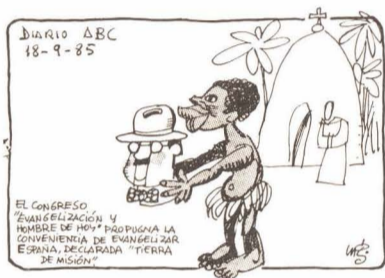 DIARIO ABC
18-9-85
EL CONGRESO
"EVANGELIZACIÓN Y
HOMBRE DE HOY" PROPUGNA LA
CONVENIENCIA DE EVANGELIZAR
ESPAÑA, DECLARADA "TIERRA
DE MISIÓN"